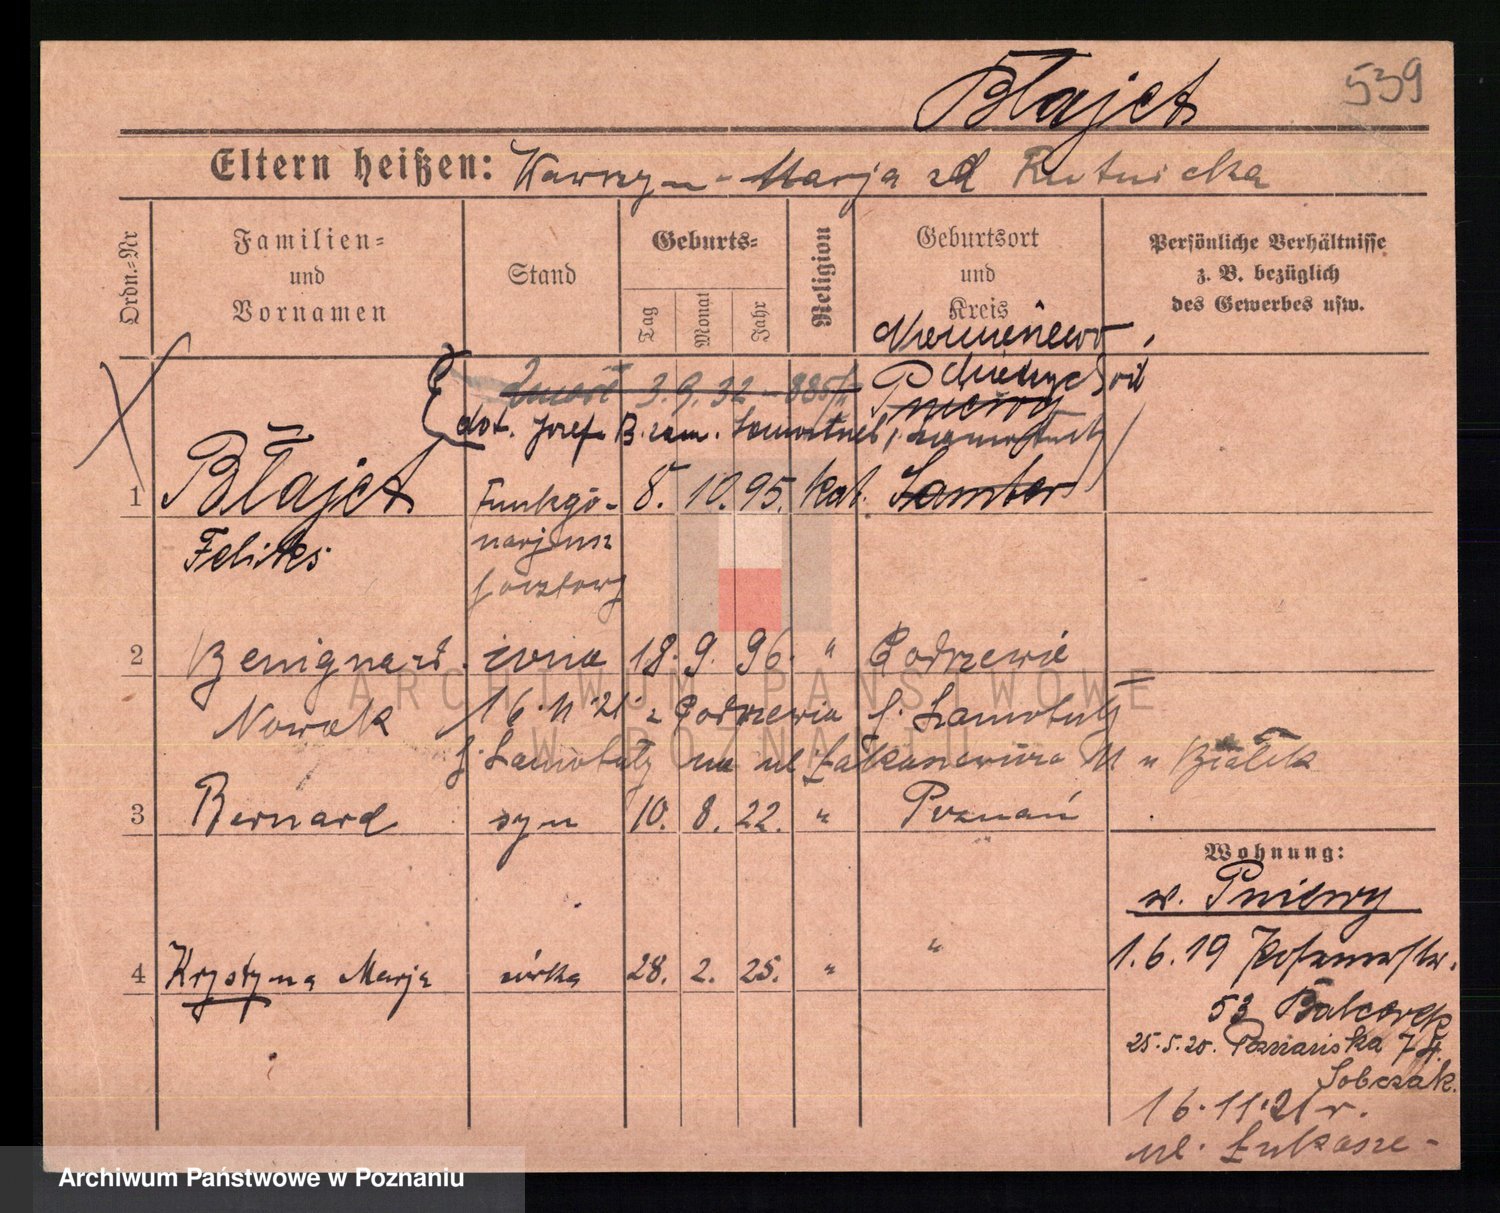 Błajet
539
Eltern heißen: Wawrzyn - Marja zd Rutnicka
Ordn.=Nr
Familien=
und
Vornamen
Stand
Geburts=
Tag
Monat
Jahr
Religion
Geburtsort
und
Kreis
Persönliche Verhältnisse
z. B. bezüglich
des Gewerbes usw.
3.9.32
Pniewy
dot. Józef B.
1 Błajet 8. 10. 95. kat. Samter
Feliks
Funkgo-
narjusz
pocztowy
2 Benigna zd. żona 18. 9. 96. " Podrzewie
Nowak 16.11.21 z Podrzewia p. Szamotuły
na ul
3 Bernard syn 10. 8. 22. " Poznań
Wohnung:
w. Pniewy
4 Krystyna Marja córka 28. 2. 25. " "
1.6.19
53
25.5.20. Poznańska 7
Sobczak.
16.11.21 r.
ul. Łukasze-
ARCHIWUM PAŃSTWOWE
W POZNANIU
Archiwum Państwowe w Poznaniu